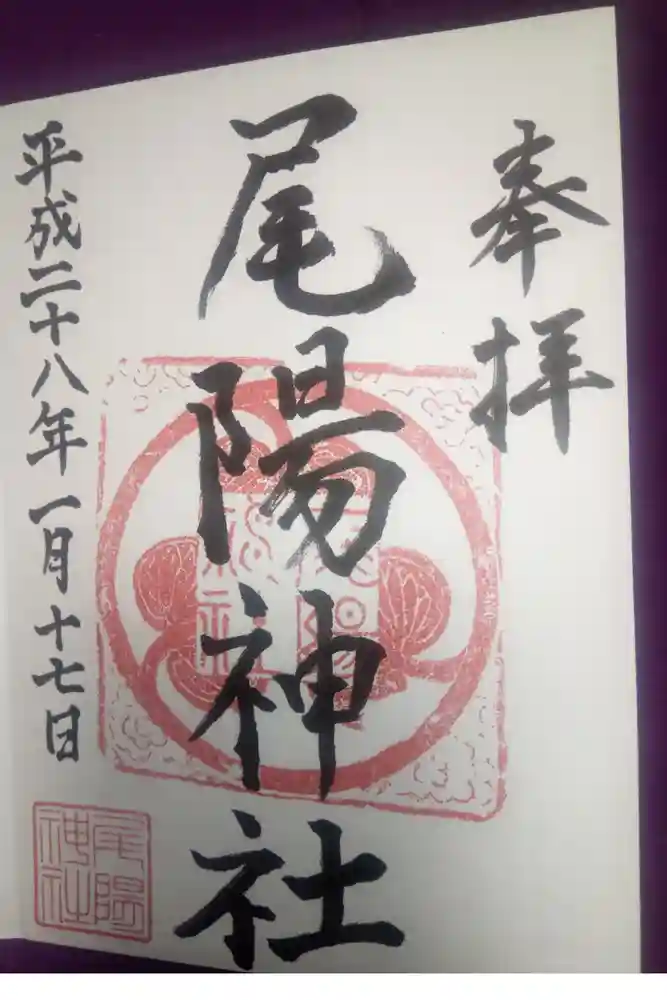 奉拝
尾陽神社
平成二十八年一月十七日
尾陽
神社